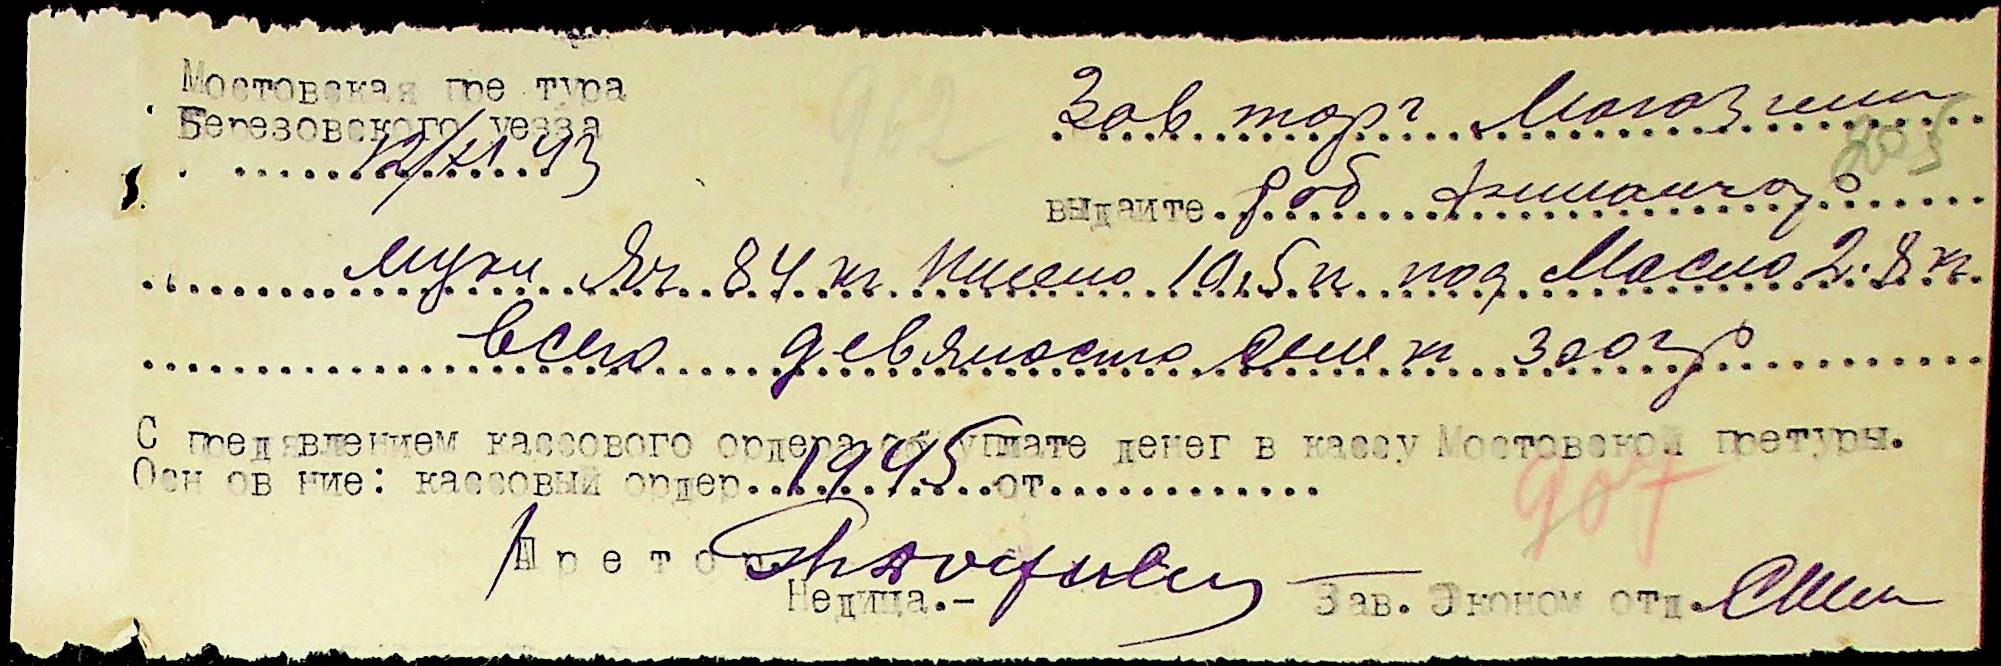 Мостовская пре тура
Березовского уезза
12/XI 43
902
Зав торг Магазгеми
205
выдаите роб
муки Яч 84 кг Пшено 19,5 к под Масло 2.8 к.
всего девяносто к 300гр
С предявлением кассового ордера об уплате денег в кассу Мостовской претуры.
Осн ов ние: кассовый ордер 1945 от
907
Претор
Недица.-
Зав. Эконом отд.